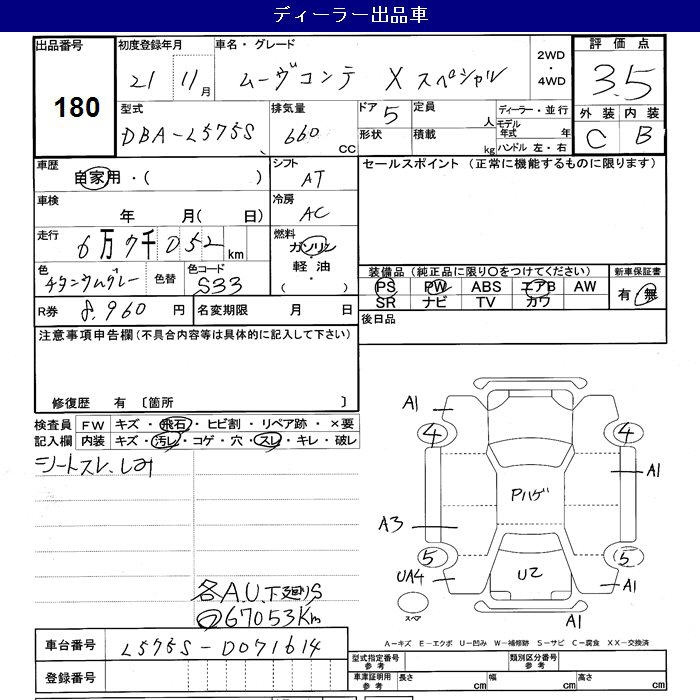 ディーラー出品車
出品番号
180
初度登録年月
21 11月
車名・グレード
ムーヴコンテ Xスペシャル
2WD
・
4WD
評価点
3.5
型式
DBA-L575S
排気量
660 CC
ドア
5
形状
定員
人
積載
kg
ディーラー・並行
モデル年式 年
ハンドル 左・右
外装 内装
C B
車歴
自家用・( )
シフト
AT
セールスポイント (正常に機能するものに限ります)
車検
年 月( 日)
冷房
AC
走行
6万7千052km
燃料
ガソリン
軽油
( ・ )
色
チタニウムグレー
色替
色コード
S33
装備品 (純正品に限り○をつけてください)
PS PW ABS エアB AW
SR ナビ TV カワ
新車保証書
有・無
R券 8,960 円
名変期限 月 日
後日品
注意事項申告欄 (不具合内容等は具体的に記入して下さい)
修復歴 有 〔箇所 〕
検査員 FW キズ・飛石・ヒビ割・リペア跡・×要
記入欄 内装 キズ・汚レ・コゲ・穴・スレ・キレ・破レ
シートスレ、しみ
各A.U.下廻りS
67053Km
A1
4
4
A1
Pハゲ
A3
5
5
UA4
U2
A1
スペア
A1
A−キズ E−エクボ U−凹み W−補修跡 S−サビ C−腐食 XX−交換済
車台番号 L575S-0071614
登録番号
型式指定番号 参考
類別区分番号 参考
車庫証明用 参考
長さ cm
幅 cm
高さ cm